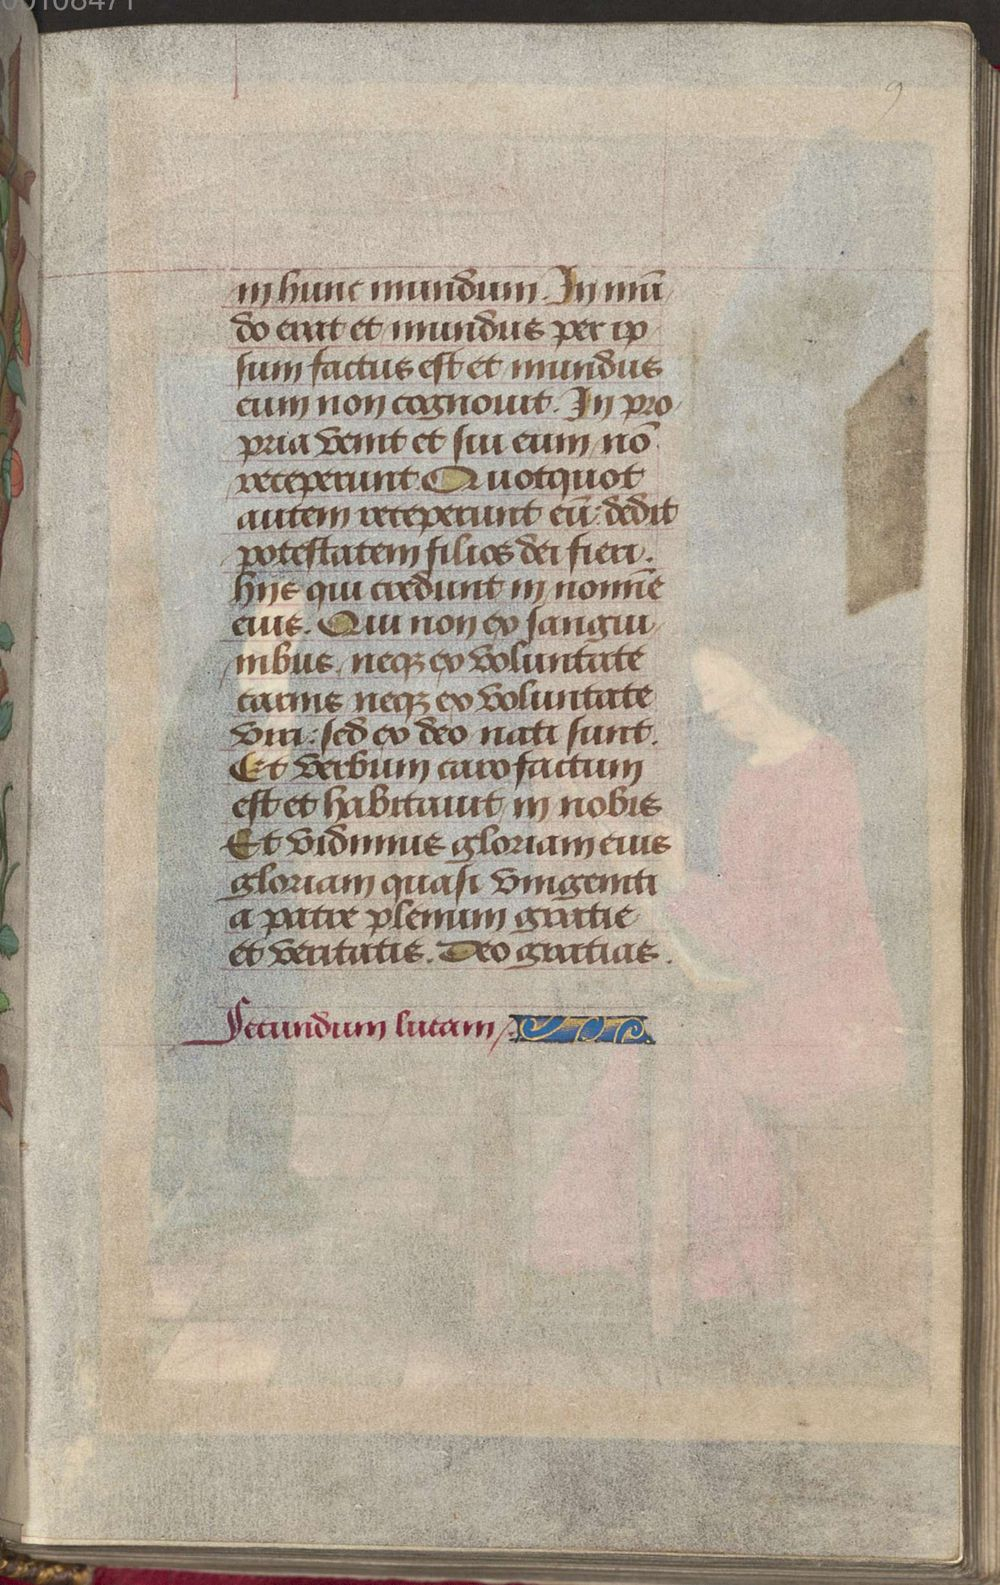 00108471
9
in hunc mundum. In mū
do erat et mundus per ip
sum factus est et mundus
eum non cognouit. In pro
pria venit et sui eum nō
receperunt Quotquot
autem receperunt eū: dedit
potestatem filios dei fieri.
hijs qui credunt in nomīe
eius. Qui non ex sangui
nibus, neqꝫ ex voluntate
carnis neqꝫ ex voluntate
viri: sed ex deo nati sunt.
Et verbum caro factum
est et habitauit in nobis
Et vidimus gloriam eius
gloriam quasi vnigeniti
a patre plenum gratie
et veritatis. Deo gratias.
Secundum lucam